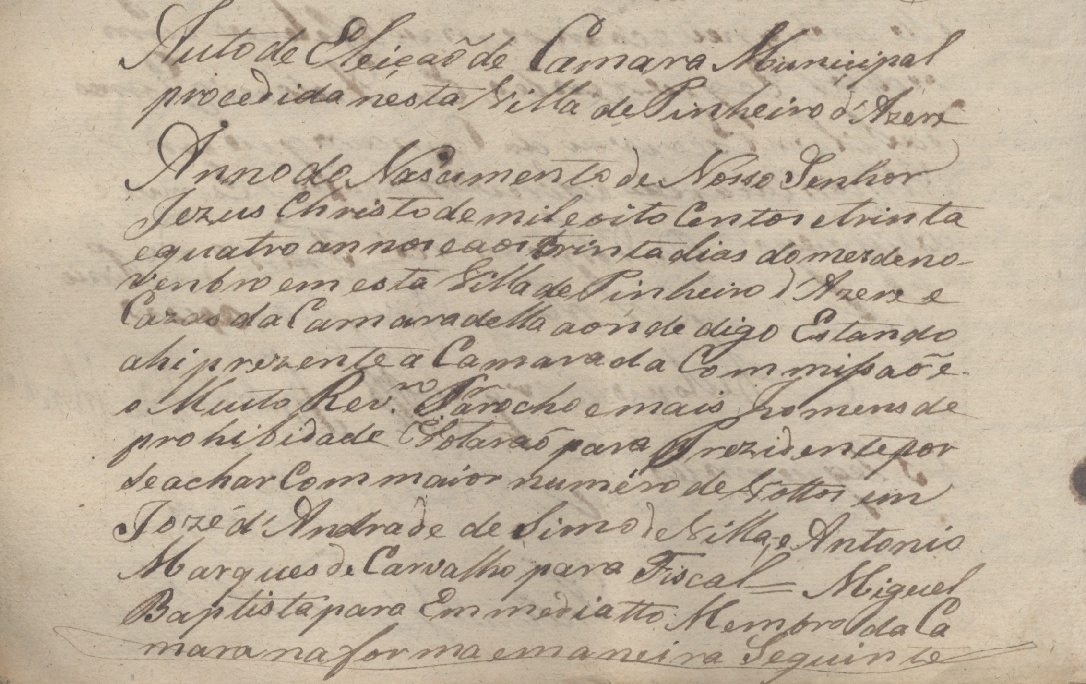 Auto de Eleição de Camara Municipal
procedida nesta Villa de Pinheiro d'Azere
Anno do Nascimento de Nosso Senhor
Jezus Christo de mil e oito Centos e trinta
e quatro annos e aos trinta dias do mes de no-
venbro em esta Villa de Pinheiro d'Azere e
Cazas da Camara della aonde digo Estando
ahi prezente a Camara da Commissaõ e
o Muito Rev.mo Párocho e mais homens de
prohibidade Votaraõ para Prezidente por
se achar Com maior numéro de Vottos em
Jozé d'Andrade de Simo de Villa, e Antonio
Marques de Carvalho para Fiscal = Miguel
Baptista para Emmediatto Membro da Ca
mara na forma e maneira Seguinte